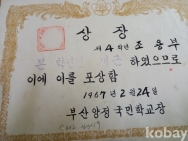 상장
제4학년 조용부
본 학년
하였으므로
이에 이를 포상함
1967년 2월 24일
부산양정국민학교장
kobay